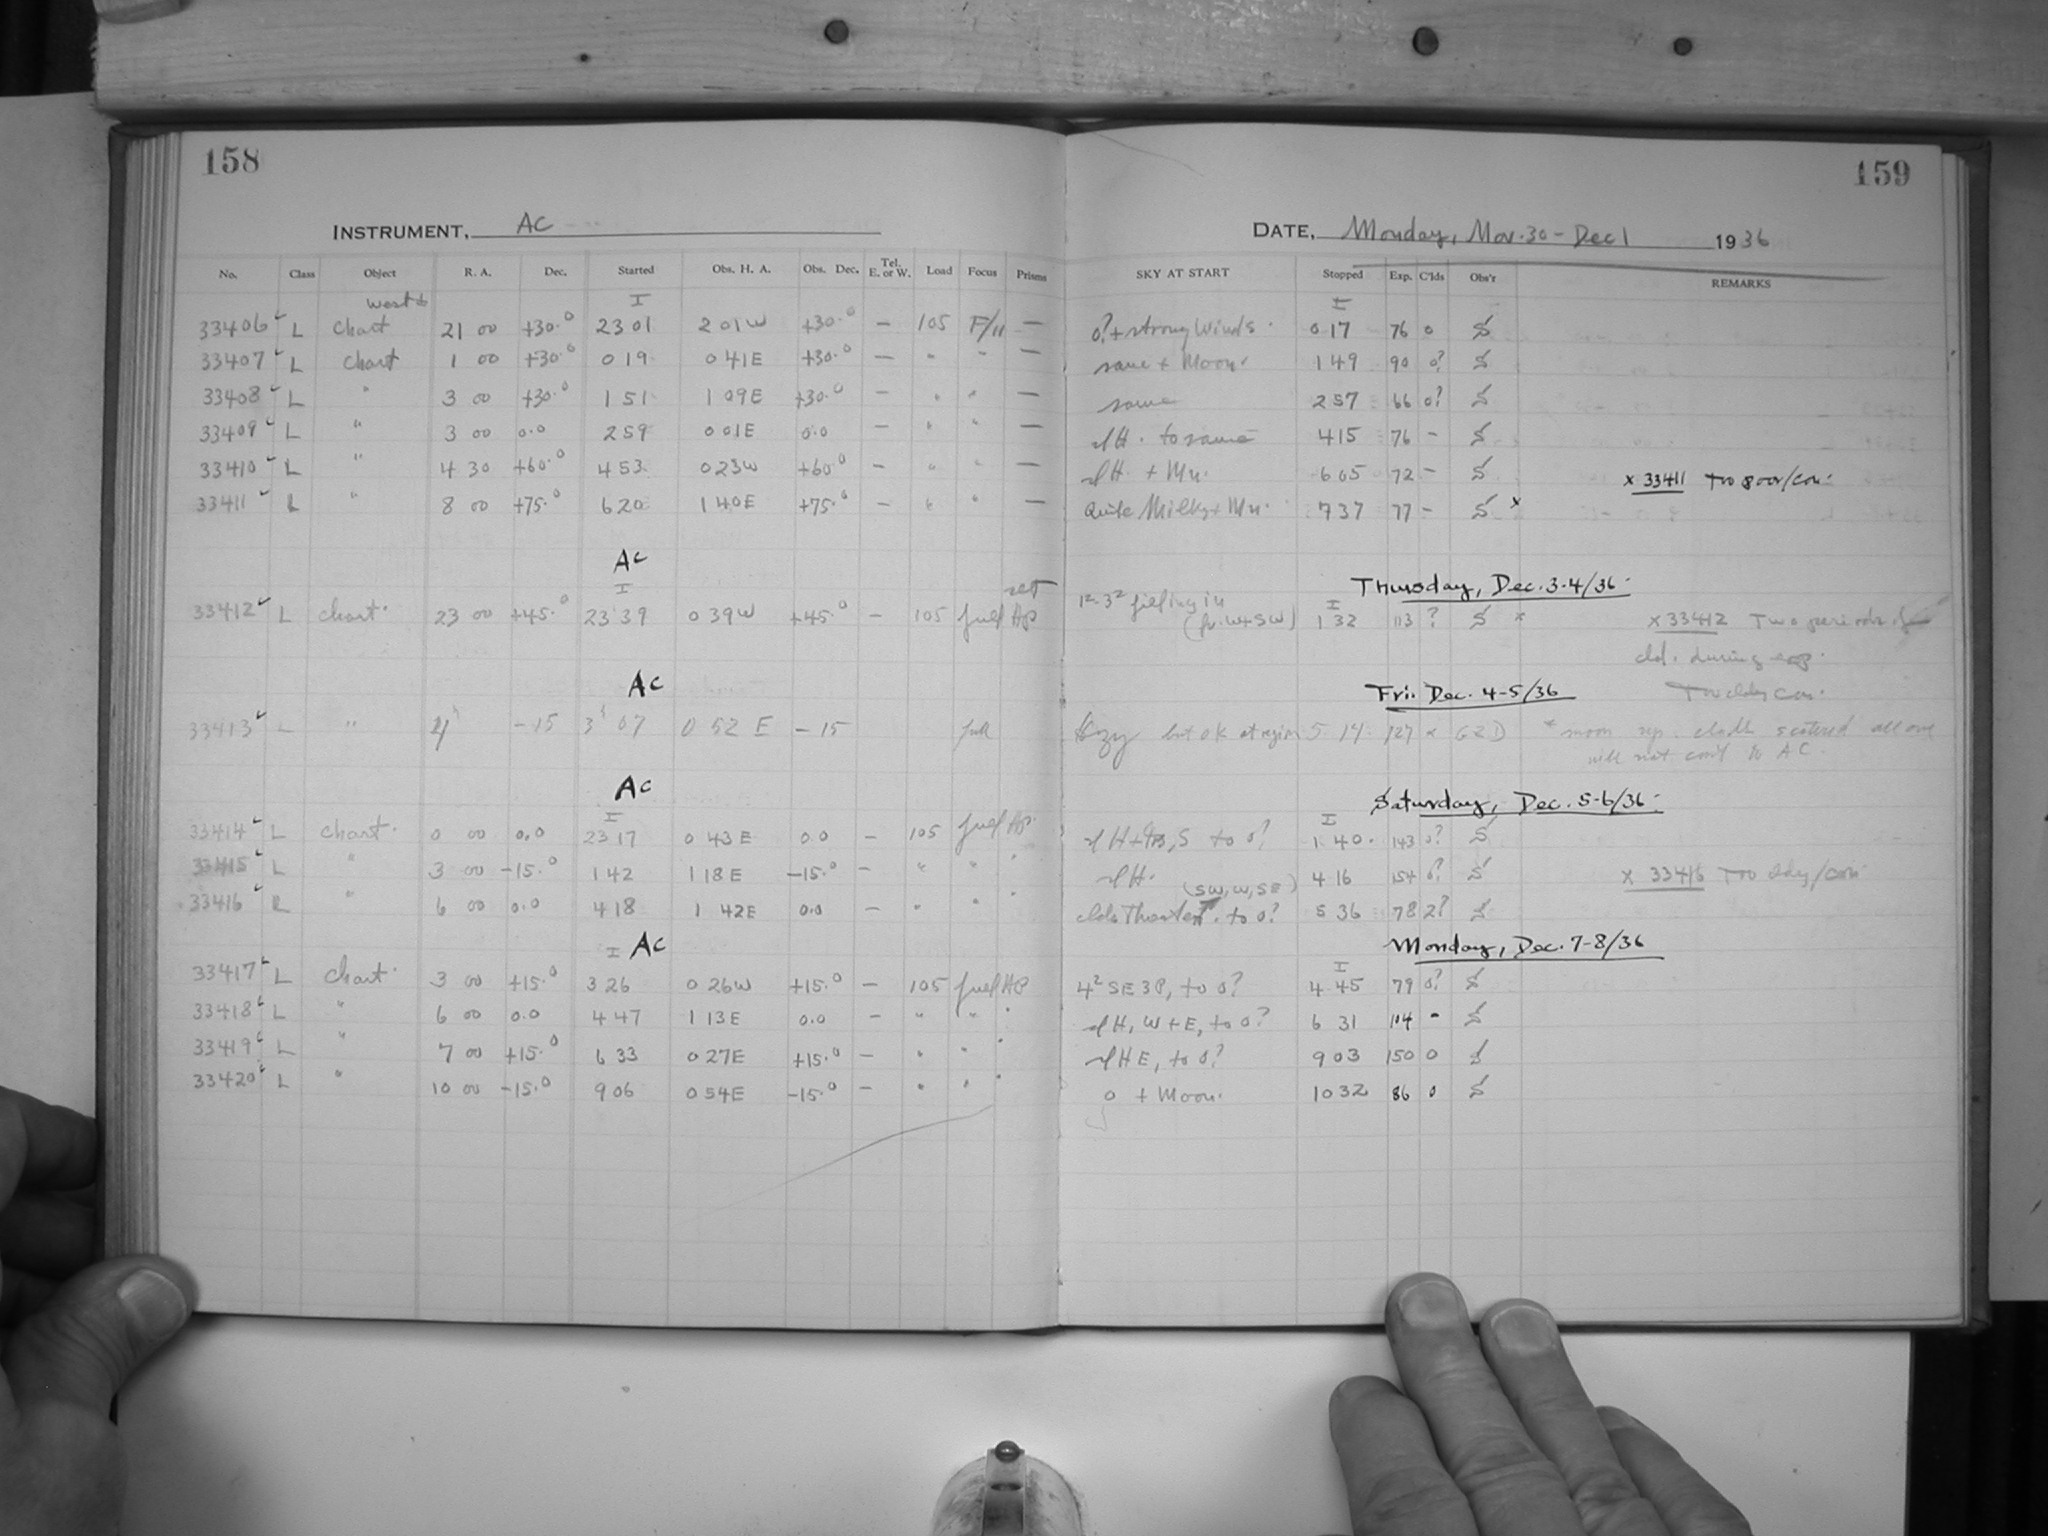 158
INSTRUMENT, AC
No. Class Object R. A. Dec. Started Obs. H. A. Obs. Dec. Tel. E. or W. Load Focus Prisms
West I
33406 L Chart 21 00 +30.0 23 01 2 01 W +30.0 – 105 F/11 –
33407 L Chart 1 00 +30.0 0 19 0 41 E +30.0 – " " –
33408 L " 3 00 +30.0 1 51 1 09 E +30.0 – " " –
33409 L " 3 00 0.0 2 59 0 01 E 0.0 – " " –
33410 L " 4 30 +60.0 4 53 0 23 W +60.0 – " " –
33411 L " 8 00 +75.0 6 20 1 40 E +75.0 – " –
AC
I
33412 L Chart. 23 00 +45.0 23 39 0 39 W +45.0 – 105 full AP
AC
33413 L " 4h –15 3h 07 0 52 E –15 full
AC
I
33414 L Chart. 0 00 0.0 23 17 0 43 E 0.0 – 105 full AP.
33415 L " 3 00 –15.0 1 42 1 18 E –15.0 – " " "
33416 L " 6 00 0.0 4 18 1 42 E 0.0 – " " "
I AC
33417 L Chart. 3 00 +15.0 3 26 0 26 W +15.0 – 105 full AP
33418 L " 6 00 0.0 4 47 1 13 E 0.0 – " " "
33419 L " 7 00 +15.0 6 33 0 27 E +15.0 – " " "
33420 L " 10 00 –15.0 9 06 0 54 E –15.0 – " " "
159
DATE, Monday, Nov. 30 – Dec 1 1936
SKY AT START Stopped Exp. C'lds Obs'r REMARKS
I
0? + strong Winds. 0 17 76 0 S
same + Moon. 1 49 90 0? S
same 2 57 66 0? S
H. to same 4 15 76 – S
H. + Mn. 6 05 72 – S x 33411 Too poor/con.
Quite Milky + Mn. 7 37 77 – S x
Thursday, Dec. 3-4/36.
1²-3² filling in I
(fr. W+SW) 1 32 113 ? S x x 33412 Two periods of
cld. during exp.
Fri. Dec. 4-5/36 Too cldy con.
Hazy but ok at region 5 14 127 x * moon up. clouds scattered all over
will not cont
Saturday, Dec. 5-6/36.
I
S to 0? 1 40. 143 0? S
H. 4 16 154 0? S x 33416 Too cldy/con
(SW, W, SE)
clds Threaten. to 0? 5 36 78 2? S
Monday, Dec. 7-8/36
I
4² SE 3P, to 0? 4 45 79 0? S
H, W+E, to 0? 6 31 104 – S
H E, to 0? 9 03 150 0 S
0 + Moon. 10 32 86 0 S